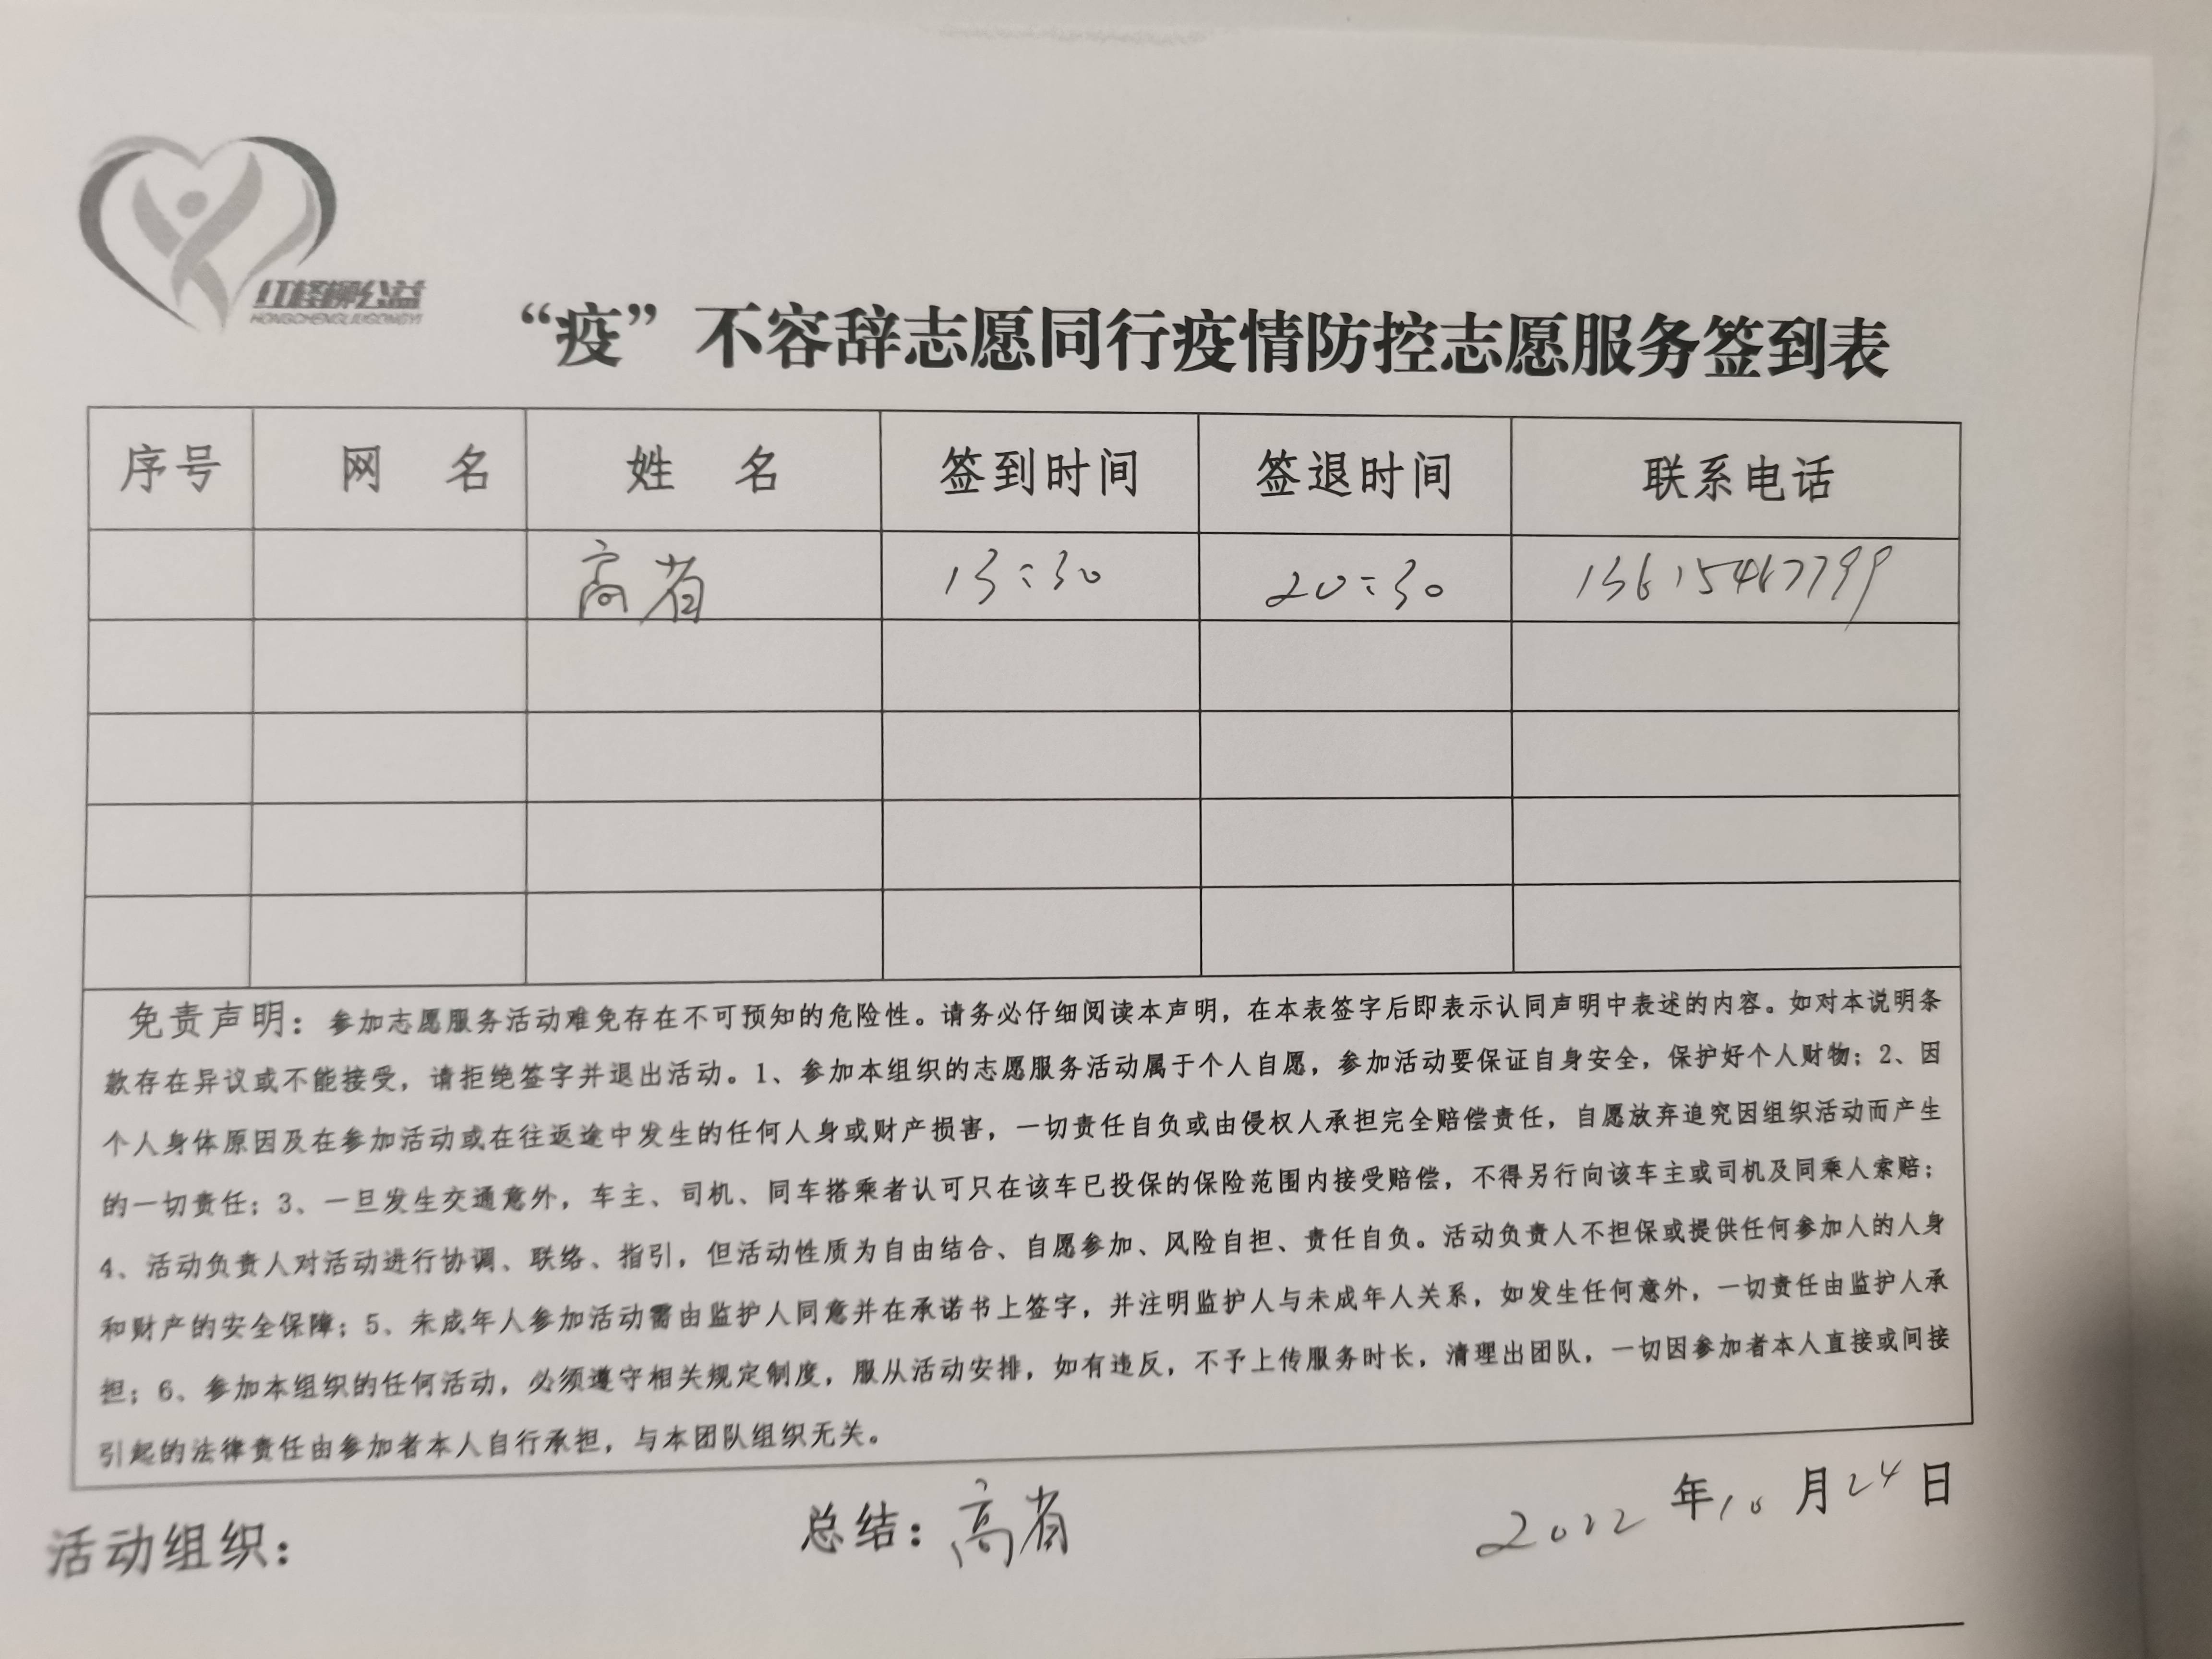 红柽柳公益
HONGCHENGLIUGONGYI
“疫”不容辞志愿同行疫情防控志愿服务签到表
序号 网 名 姓 名 签到时间 签退时间 联系电话
高省 13:30 20:30 13615467799
免责声明：参加志愿服务活动难免存在不可预知的危险性。请务必仔细阅读本声明，在本表签字后即表示认同声明中表述的内容。如对本说明条
款存在异议或不能接受，请拒绝签字并退出活动。1、参加本组织的志愿服务活动属于个人自愿，参加活动要保证自身安全，保护好个人财物；2、因
个人身体原因及在参加活动或在往返途中发生的任何人身或财产损害，一切责任自负或由侵权人承担完全赔偿责任，自愿放弃追究因组织活动而产生
的一切责任；3、一旦发生交通意外，车主、司机、同车搭乘者认可只在该车已投保的保险范围内接受赔偿，不得另行向该车主或司机及同乘人索赔；
4、活动负责人对活动进行协调、联络、指引，但活动性质为自由结合、自愿参加、风险自担、责任自负。活动负责人不担保或提供任何参加人的人身
和财产的安全保障；5、未成年人参加活动需由监护人同意并在承诺书上签字，并注明监护人与未成年人关系，如发生任何意外，一切责任由监护人承
担；6、参加本组织的任何活动，必须遵守相关规定制度，服从活动安排，如有违反，不予上传服务时长，清理出团队，一切因参加者本人直接或间接
引起的法律责任由参加者本人自行承担，与本团队组织无关。
活动组织： 总结：高省 2022年10月24日